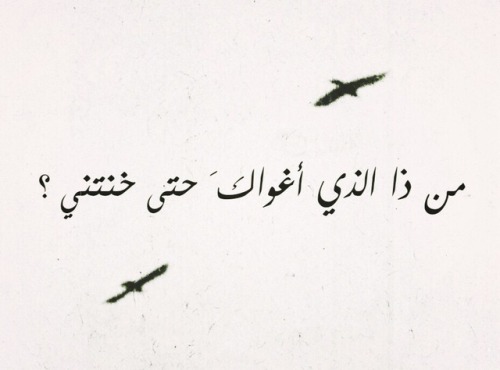 من ذا الذي أغواكَ حتى خنتني ؟